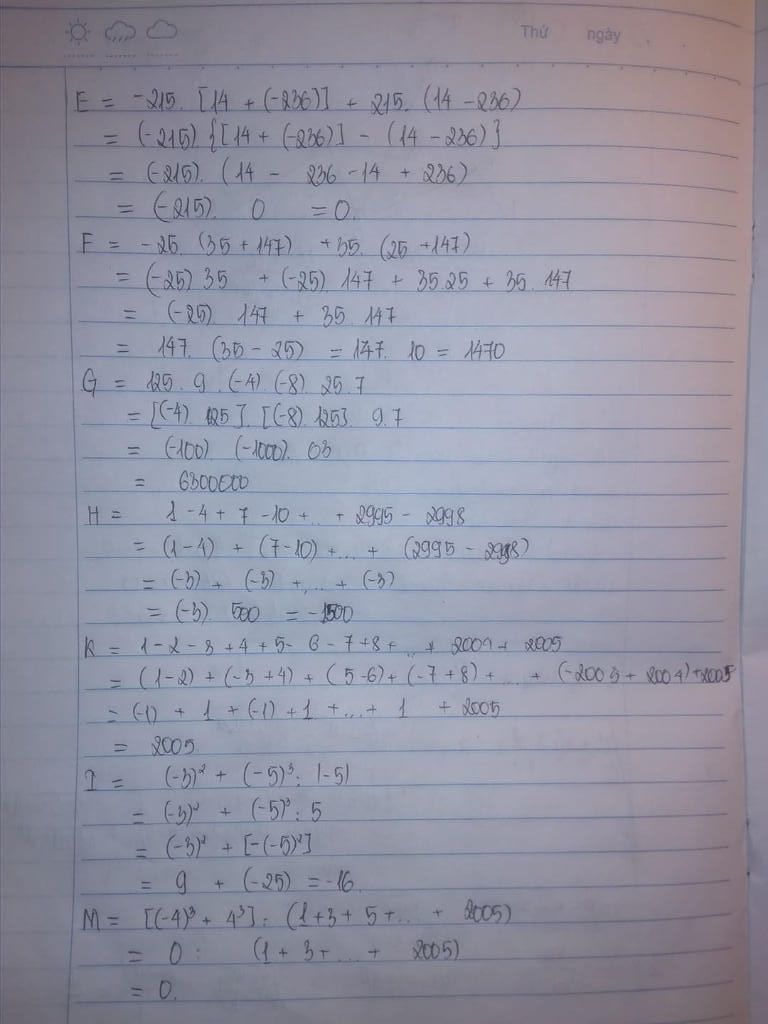 Thứ ngày
E = -215. [14 + (-236)] + 215. (14 - 236)
= (-215) {[14 + (-236)] - (14 - 236)}
= (-215). (14 - 236 - 14 + 236)
= (-215). 0 = 0.
F = -25. (35 + 147) + 35. (25 + 147)
= (-25) 35 + (-25). 147 + 35.25 + 35. 147
= (-25). 147 + 35. 147
= 147. (35 - 25) = 147. 10 = 1470
G = 125. 9. (-4). (-8). 25. 7
= [(-4). 25]. [(-8). 125]. 9.7
= (-100). (-1000). 63
= 6300000
H = 1 - 4 + 7 - 10 + ... + 2995 - 2998
= (1 - 4) + (7 - 10) + ... + (2995 - 2998)
= (-3) + (-3) + ... + (-3)
= (-3). 500 = -1500
K = 1 - 2 - 3 + 4 + 5 - 6 - 7 + 8 + ... + 2004 + 2005
= (1 - 2) + (-3 + 4) + (5 - 6) + (-7 + 8) + ... + (-2003 + 2004) + 2005
= (-1) + 1 + (-1) + 1 + ... + 1 + 2005
= 2005
I = (-3)² + (-5)³ : |-5|
= (-3)² + (-5)³ : 5
= (-3)² + [-(-5)²]
= 9 + (-25) = -16.
M = [(-4)³ + 4³] : (1 + 3 + 5 + ... + 2005)
= 0 : (1 + 3 + ... + 2005)
= 0.